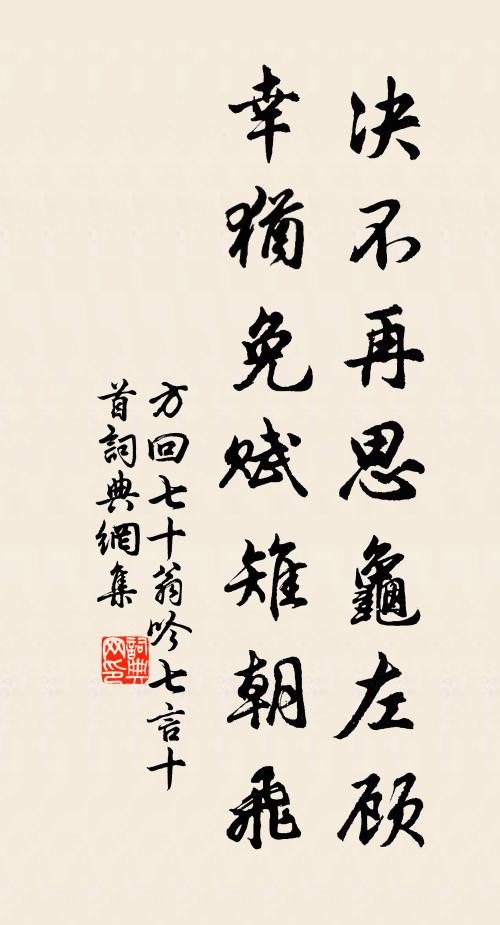 决不再思龜左顧
幸猶免賦雉朝飛
方回七十翁吟七言十
首詞典網集
詞典
网印